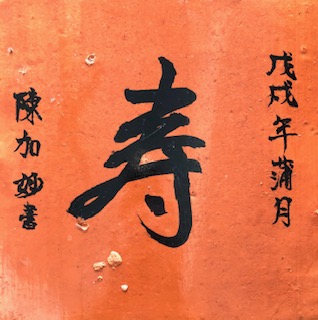 戊戌年蒲月
寿
陳加妙書